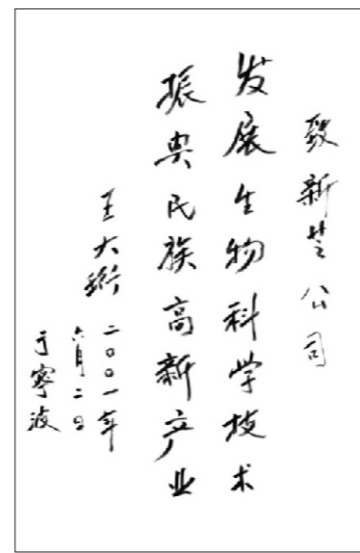 致新芝公司
发展生物科学技术
振兴民族高新产业
王大珩 二〇〇一年
六月二日
于宁波